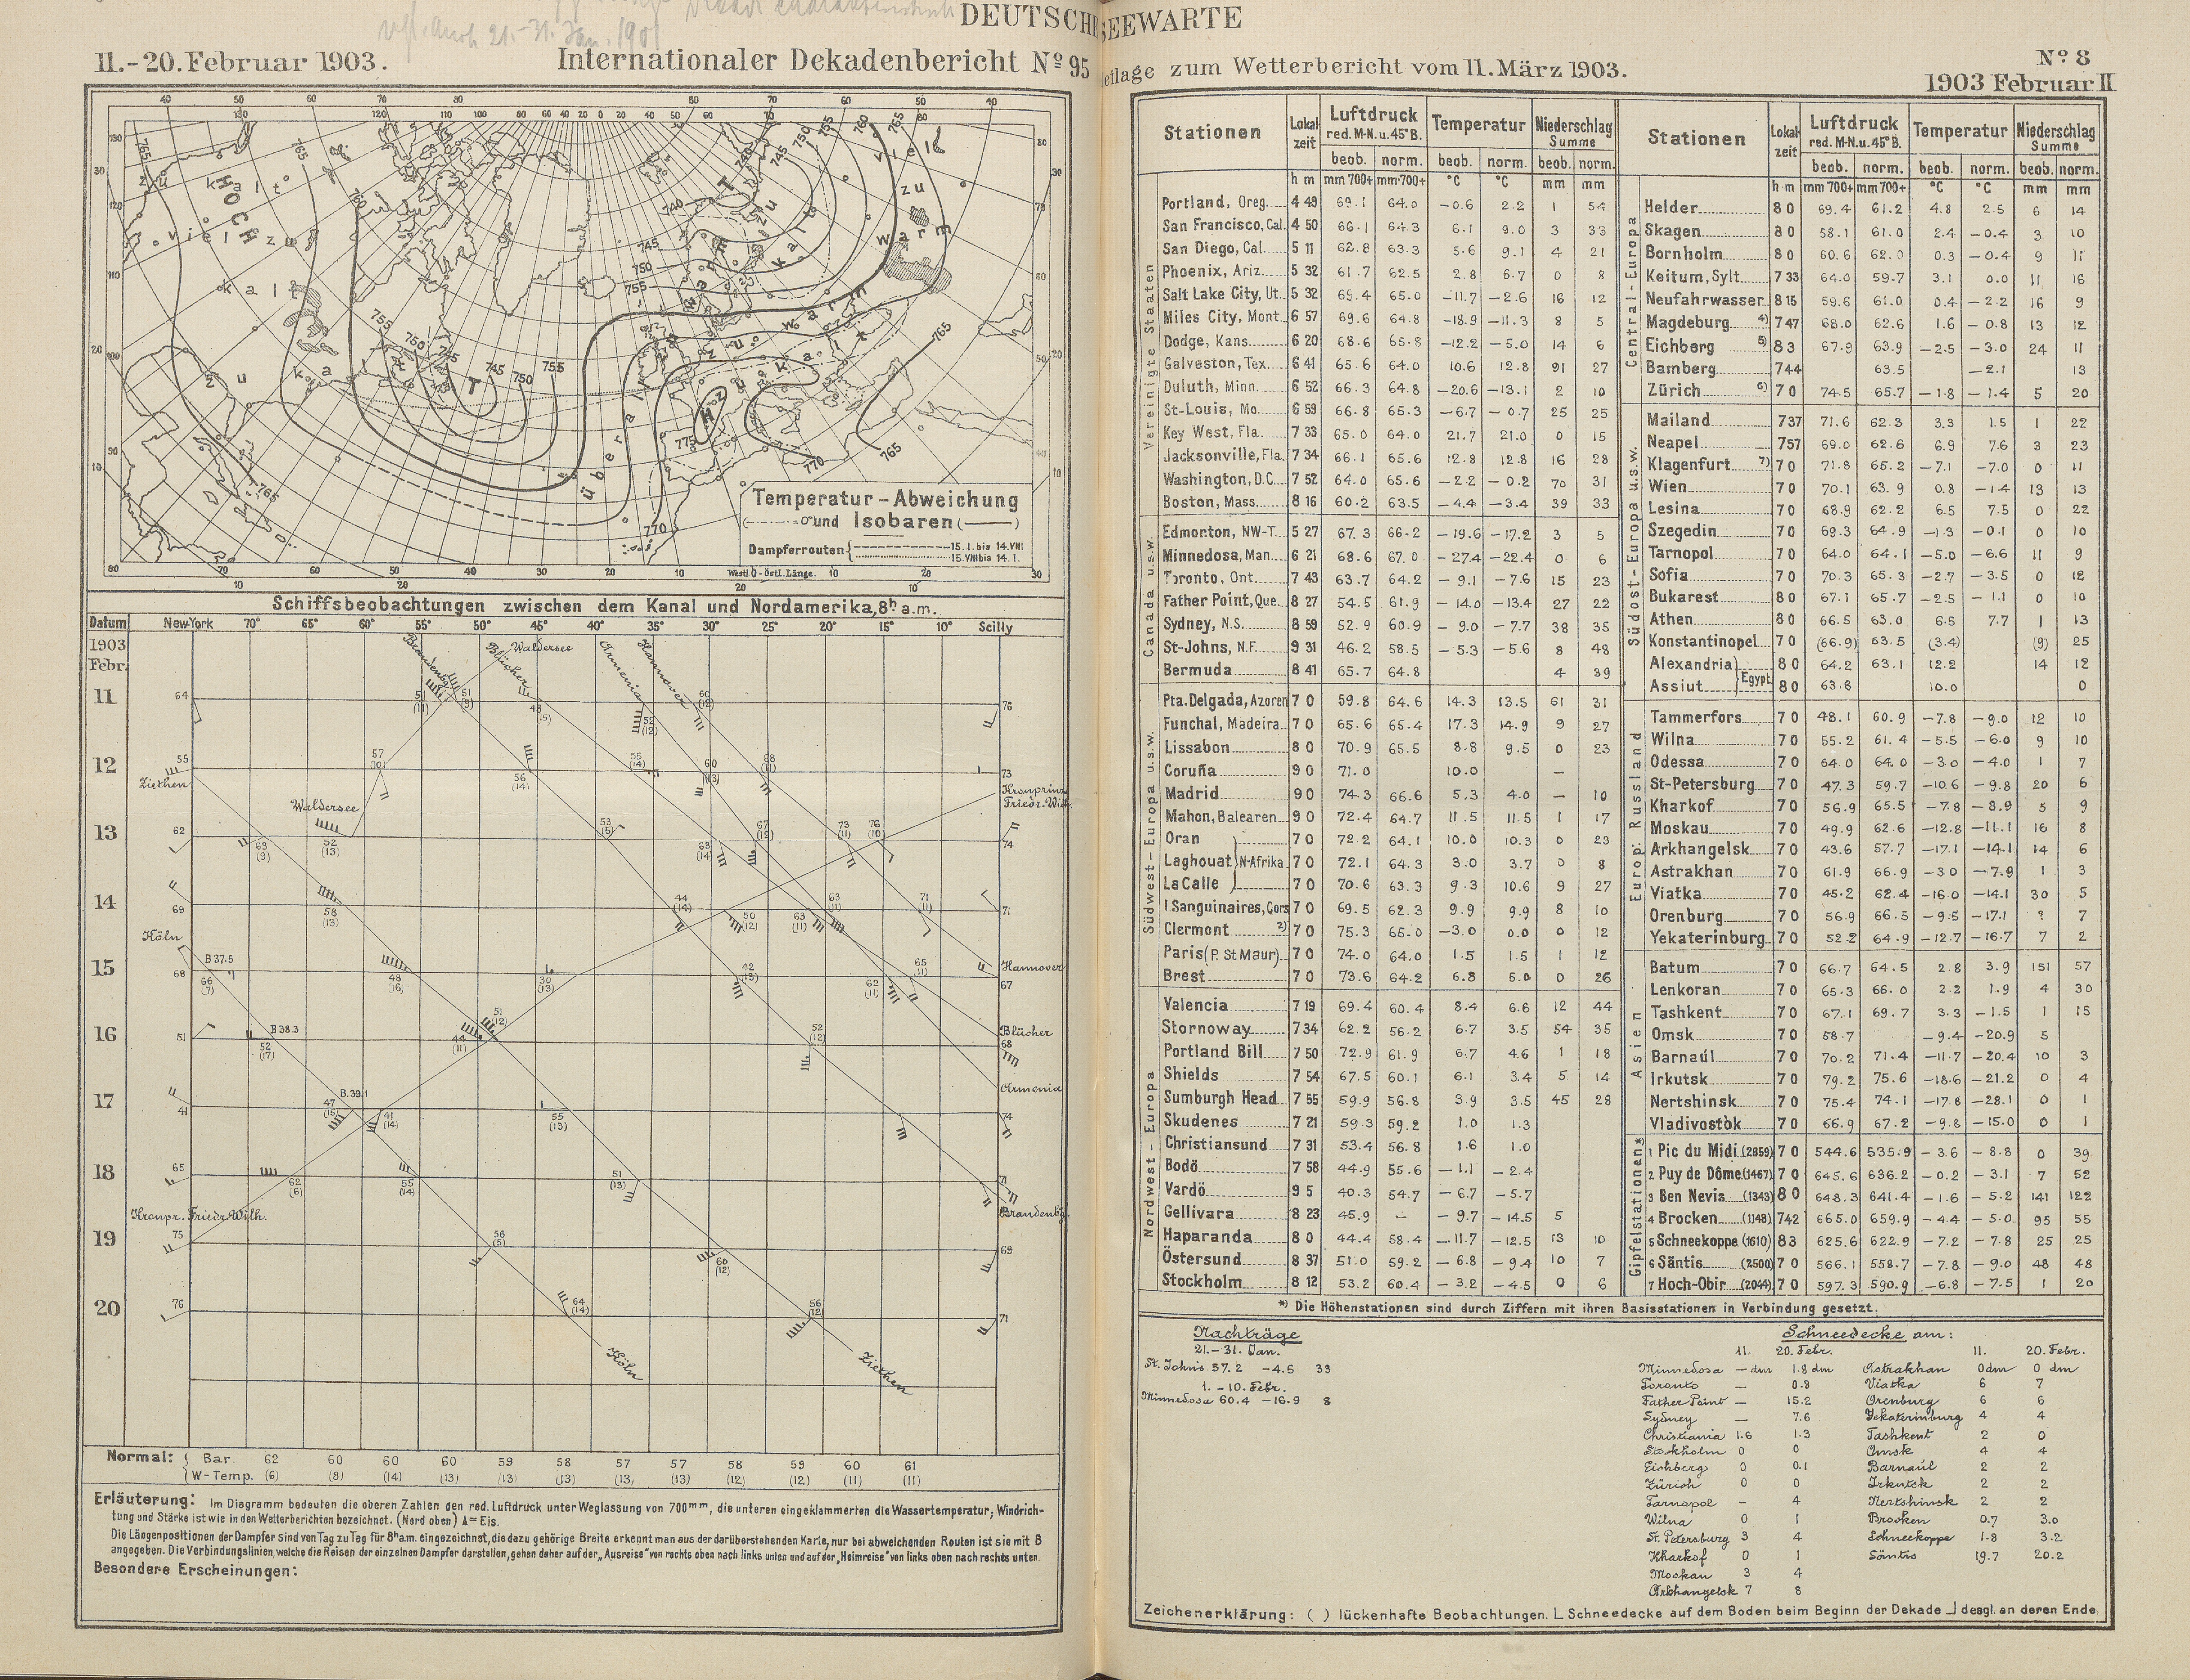 DEUTSCHE SEEWARTE
11.-20. Februar 1903.
Internationaler Dekadenbericht No 95
Beilage zum Wetterbericht vom 11. März 1903.
No 8
1903 Februar II
HOCH
zu kalt
viel zu
kalt
T
zu kalt
viel zu warm
überall zu warm
Hoz
Temperatur-Abweichung
(-·-·-=0° und Isobaren (———)
Dampferrouten { 15. I. bis 14. VIII
15. VIII bis 14. I.
Westl. 0 - östl. Länge.
Schiffsbeobachtungen zwischen dem Kanal und Nordamerika, 8h a.m.
Datum New-York 70° 65° 60° 55° 50° 45° 40° 35° 30° 25° 20° 15° 10° Scilly
1903
Febr.
Blücher Waldersee Armenia Hannover
11
12
Ziethen
Waldersee
Kronprinz
13
14
Köln
B 37.5
15
Hannover
16
B 38.3
Blücher
Armenia
17
B. 39.1
18
Kronpr. Friedr. Wilh.
19
20
Köln
Ziethen
Normal: { Bar. 62 60 60 60 59 58 57 57 58 59 60 61
W-Temp. (6) (8) (14) (13) (13) (13) (13) (13) (12) (12) (11) (11)
Erläuterung: Im Diagramm bedeuten die oberen Zahlen den red. Luftdruck unter Weglassung von 700mm, die unteren eingeklammerten die Wassertemperatur; Windrich-
tung und Stärke ist wie in den Wetterberichten bezeichnet. (Nord oben) ∆= Eis.
Die Längenpositionen der Dampfer sind von Tag zu Tag für 8h a.m. eingezeichnet, die dazu gehörige Breite erkennt man aus der darüberstehenden Karte, nur bei abweichenden Routen ist sie mit B
angegeben. Die Verbindungslinien, welche die Reisen der einzelnen Dampfer darstellen, gehen daher auf der „Ausreise" von rechts oben nach links unten und auf der „Heimreise" von links oben nach rechts unten.
Besondere Erscheinungen:
Stationen Lokalzeit Luftdruck red. M-N. u. 45° B. Temperatur Niederschlag Summe
beob. norm. beob. norm. beob. norm.
h m mm 700+ mm 700+ °C °C mm mm
Vereinigte Staaten
Portland, Oreg. 4 49 69.1 64.0 -0.6 2.2 1 54
San Francisco, Cal. 4 50 66.1 64.3 6.1 9.0 3 33
San Diego, Cal. 5 11 62.8 63.3 5.6 9.1 4 21
Phoenix, Ariz. 5 32 61.7 62.5 2.8 6.7 0 8
Salt Lake City, Ut. 5 32 69.4 65.0 -11.7 -2.6 16 12
Miles City, Mont. 6 57 69.6 64.8 -18.9 -11.3 8 5
Dodge, Kans. 6 20 68.6 65.8 -12.2 -5.0 14 6
Galveston, Tex. 6 41 65.6 64.0 10.6 12.8 91 27
Duluth, Minn. 6 52 66.3 64.8 -20.6 -13.1 2 10
St-Louis, Mo. 6 59 66.8 65.3 -6.7 -0.7 25 25
Key West, Fla. 7 33 65.0 64.0 21.7 21.0 0 15
Jacksonville, Fla. 7 34 66.1 65.6 12.8 12.8 16 28
Washington, D.C. 7 52 64.0 65.6 -2.2 -0.2 70 31
Boston, Mass. 8 16 60.2 63.5 -4.4 -3.4 39 33
Canada u.s.w.
Edmonton, NW-T. 5 27 67.3 66.2 -19.6 -17.2 3 5
Minnedosa, Man. 6 21 68.6 67.0 -27.4 -22.4 0 6
Toronto, Ont. 7 43 63.7 64.2 -9.1 -7.6 15 23
Father Point, Que. 8 27 54.5 61.9 -14.0 -13.4 27 22
Sydney, N.S. 8 59 52.9 60.9 -9.0 -7.7 38 35
St-Johns, N.F. 9 31 46.2 58.5 -5.3 -5.6 8 48
Bermuda 8 41 65.7 64.8 4 39
Südwest-Europa u.s.w.
Pta. Delgada, Azoren 7 0 59.8 64.6 14.3 13.5 61 31
Funchal, Madeira 7 0 65.6 65.4 17.3 14.9 9 27
Lissabon 8 0 70.9 65.5 8.8 9.5 0 23
Coruña 9 0 71.0 10.0 —
Madrid 9 0 74.3 66.6 5.3 4.0 — 10
Mahon, Balearen 9 0 72.4 64.7 11.5 11.5 1 17
Oran 7 0 72.2 64.1 10.0 10.3 0 23
Laghouat } N-Afrika 7 0 72.1 64.3 3.0 3.7 0 8
La Calle 7 0 70.6 63.3 9.3 10.6 9 27
I. Sanguinaires, Cors 7 0 69.5 62.3 9.9 9.9 8 10
Clermont 2) 7 0 75.3 65.0 -3.0 0.0 0 12
Paris (P. St Maur) 7 0 74.0 64.0 1.5 1.5 1 12
Brest 7 0 73.6 64.2 6.8 6.0 0 26
Nordwest-Europa
Valencia 7 19 69.4 60.4 8.4 6.6 12 44
Stornoway 7 34 62.2 56.2 6.7 3.5 54 35
Portland Bill 7 50 72.9 61.9 6.7 4.6 1 18
Shields 7 54 67.5 60.1 6.1 3.4 5 14
Sumburgh Head 7 55 59.9 56.8 3.9 3.5 45 28
Skudenes 7 21 59.3 59.2 1.0 1.3
Christiansund 7 31 53.4 56.8 1.6 1.0
Bodö 7 58 44.9 55.6 -1.1 -2.4
Vardö 9 5 40.3 54.7 -6.7 -5.7
Gellivara 8 23 45.9 - -9.7 -14.5 5
Haparanda 8 0 44.4 58.4 -11.7 -12.5 13 10
Östersund 8 37 51.0 59.2 -6.8 -9.4 10 7
Stockholm 8 12 53.2 60.4 -3.2 -4.5 0 6
Stationen Lokalzeit Luftdruck red. M-N. u. 45° B. Temperatur Niederschlag Summe
beob. norm. beob. norm. beob. norm.
h m mm 700+ mm 700+ °C °C mm mm
Central-Europa
Helder 8 0 69.4 61.2 4.8 2.5 6 14
Skagen 8 0 58.1 61.0 2.4 -0.4 3 10
Bornholm 8 0 60.6 62.0 0.3 -0.4 9 11
Keitum, Sylt 7 33 64.0 59.7 3.1 0.0 11 16
Neufahrwasser 8 15 59.6 61.0 0.4 -2.2 16 9
Magdeburg 4) 7 47 68.0 62.6 1.6 -0.8 13 12
Eichberg 5) 8 3 67.9 63.9 -2.5 -3.0 24 11
Bamberg 7 44 63.5 -2.1 13
Zürich 6) 7 0 74.5 65.7 -1.8 -1.4 5 20
Südost-Europa u.s.w.
Mailand 7 37 71.6 62.3 3.3 1.5 1 22
Neapel 7 57 69.0 62.6 6.9 7.6 3 23
Klagenfurt 7) 7 0 71.8 65.2 -7.1 -7.0 0 11
Wien 7 0 70.1 63.9 0.8 -1.4 13 13
Lesina 7 0 68.9 62.2 6.5 7.5 0 22
Szegedin 7 0 69.3 64.9 -1.3 -0.1 0 10
Tarnopol 7 0 64.0 64.1 -5.0 -6.6 11 9
Sofia 7 0 70.3 65.3 -2.7 -3.5 0 12
Bukarest 8 0 67.1 65.7 -2.5 -1.1 0 10
Athen 8 0 66.5 63.0 6.5 7.7 1 13
Konstantinopel 7 0 (66.9) 63.5 (3.4) (9) 25
Alexandria } Egypt. 8 0 64.2 63.1 12.2 14 12
Assiut 8 0 63.8 10.0 0
Europ. Russland
Tammerfors 7 0 48.1 60.9 -7.8 -9.0 12 10
Wilna 7 0 55.2 61.4 -5.5 -6.0 9 10
Odessa 7 0 64.0 64.0 -3.0 -4.0 1 7
St-Petersburg 7 0 47.3 59.7 -10.6 -9.8 20 6
Kharkof 7 0 56.9 65.5 -7.8 -8.9 5 9
Moskau 7 0 49.9 62.6 -12.8 -11.1 16 8
Arkhangelsk 7 0 43.6 57.7 -17.1 -14.1 14 6
Astrakhan 7 0 61.9 66.9 -3.0 -7.9 1 3
Viatka 7 0 45.2 62.4 -16.0 -14.1 30 5
Orenburg 7 0 56.9 66.5 -9.5 -17.1 ? 7
Yekaterinburg 7 0 52.2 64.9 -12.7 -16.7 7 2
Asien
Batum 7 0 66.7 64.5 2.8 3.9 151 57
Lenkoran 7 0 65.3 66.0 2.2 1.9 4 30
Tashkent 7 0 67.1 69.7 3.3 -1.5 1 15
Omsk 7 0 58.7 -9.4 -20.9 5
Barnaúl 7 0 70.2 71.4 -11.7 -20.4 10 3
Irkutsk 7 0 79.2 75.6 -18.6 -21.2 0 4
Nertshinsk 7 0 75.4 74.1 -17.8 -28.1 0 1
Vladivostòk 7 0 66.9 67.2 -9.8 -15.0 0 1
Gipfelstationen*)
1 Pic du Midi (2859) 7 0 544.6 535.9 -3.6 -8.8 0 39
2 Puy de Dôme (1467) 7 0 645.6 636.2 -0.2 -3.1 7 52
3 Ben Nevis (1343) 8 0 648.3 641.4 -1.6 -5.2 141 122
4 Brocken (1148) 7 42 665.0 659.9 -4.4 -5.0 95 55
5 Schneekoppe (1610) 8 3 625.6 622.9 -7.2 -7.8 25 25
6 Säntis (2500) 7 0 566.1 558.7 -7.8 -9.0 48 48
7 Hoch-Obir (2044) 7 0 597.3 590.9 -6.8 -7.5 1 20
*) Die Höhenstationen sind durch Ziffern mit ihren Basisstationen in Verbindung gesetzt.
Nachträge
21.-31. Jan.
St. Johns 57.2 -4.5 33
1.-10. Febr.
Minnedosa 60.4 -16.9 8
Schneedecke am:
11. 20. Febr. 11. 20. Febr.
Minnedosa — dm 1.8 dm Astrakhan 0 dm 0 dm
Toronto — 0.8 Viatka 6 7
Father Point — 15.2 Orenburg 6 6
Sydney — 7.6 Jekaterinburg 4 4
Christiania 1.6 1.3 Tashkent 2 0
Stockholm 0 0 Omsk 4 4
Eichberg 0 0.1 Barnaúl 2 2
Zürich 0 0 Irkutsk 2 2
Tarnopol - 4 Nertshinsk 2 2
Wilna 0 1 Brocken 0.7 3.0
St. Petersburg 3 4 Schneekoppe 1.8 3.2
Kharkof 0 1 Säntis 19.7 20.2
Moskau 3 4
Arkhangelsk 7 8
Zeichenerklärung: ( ) lückenhafte Beobachtungen. L Schneedecke auf dem Boden beim Beginn der Dekade ⅃ desgl. an deren Ende.